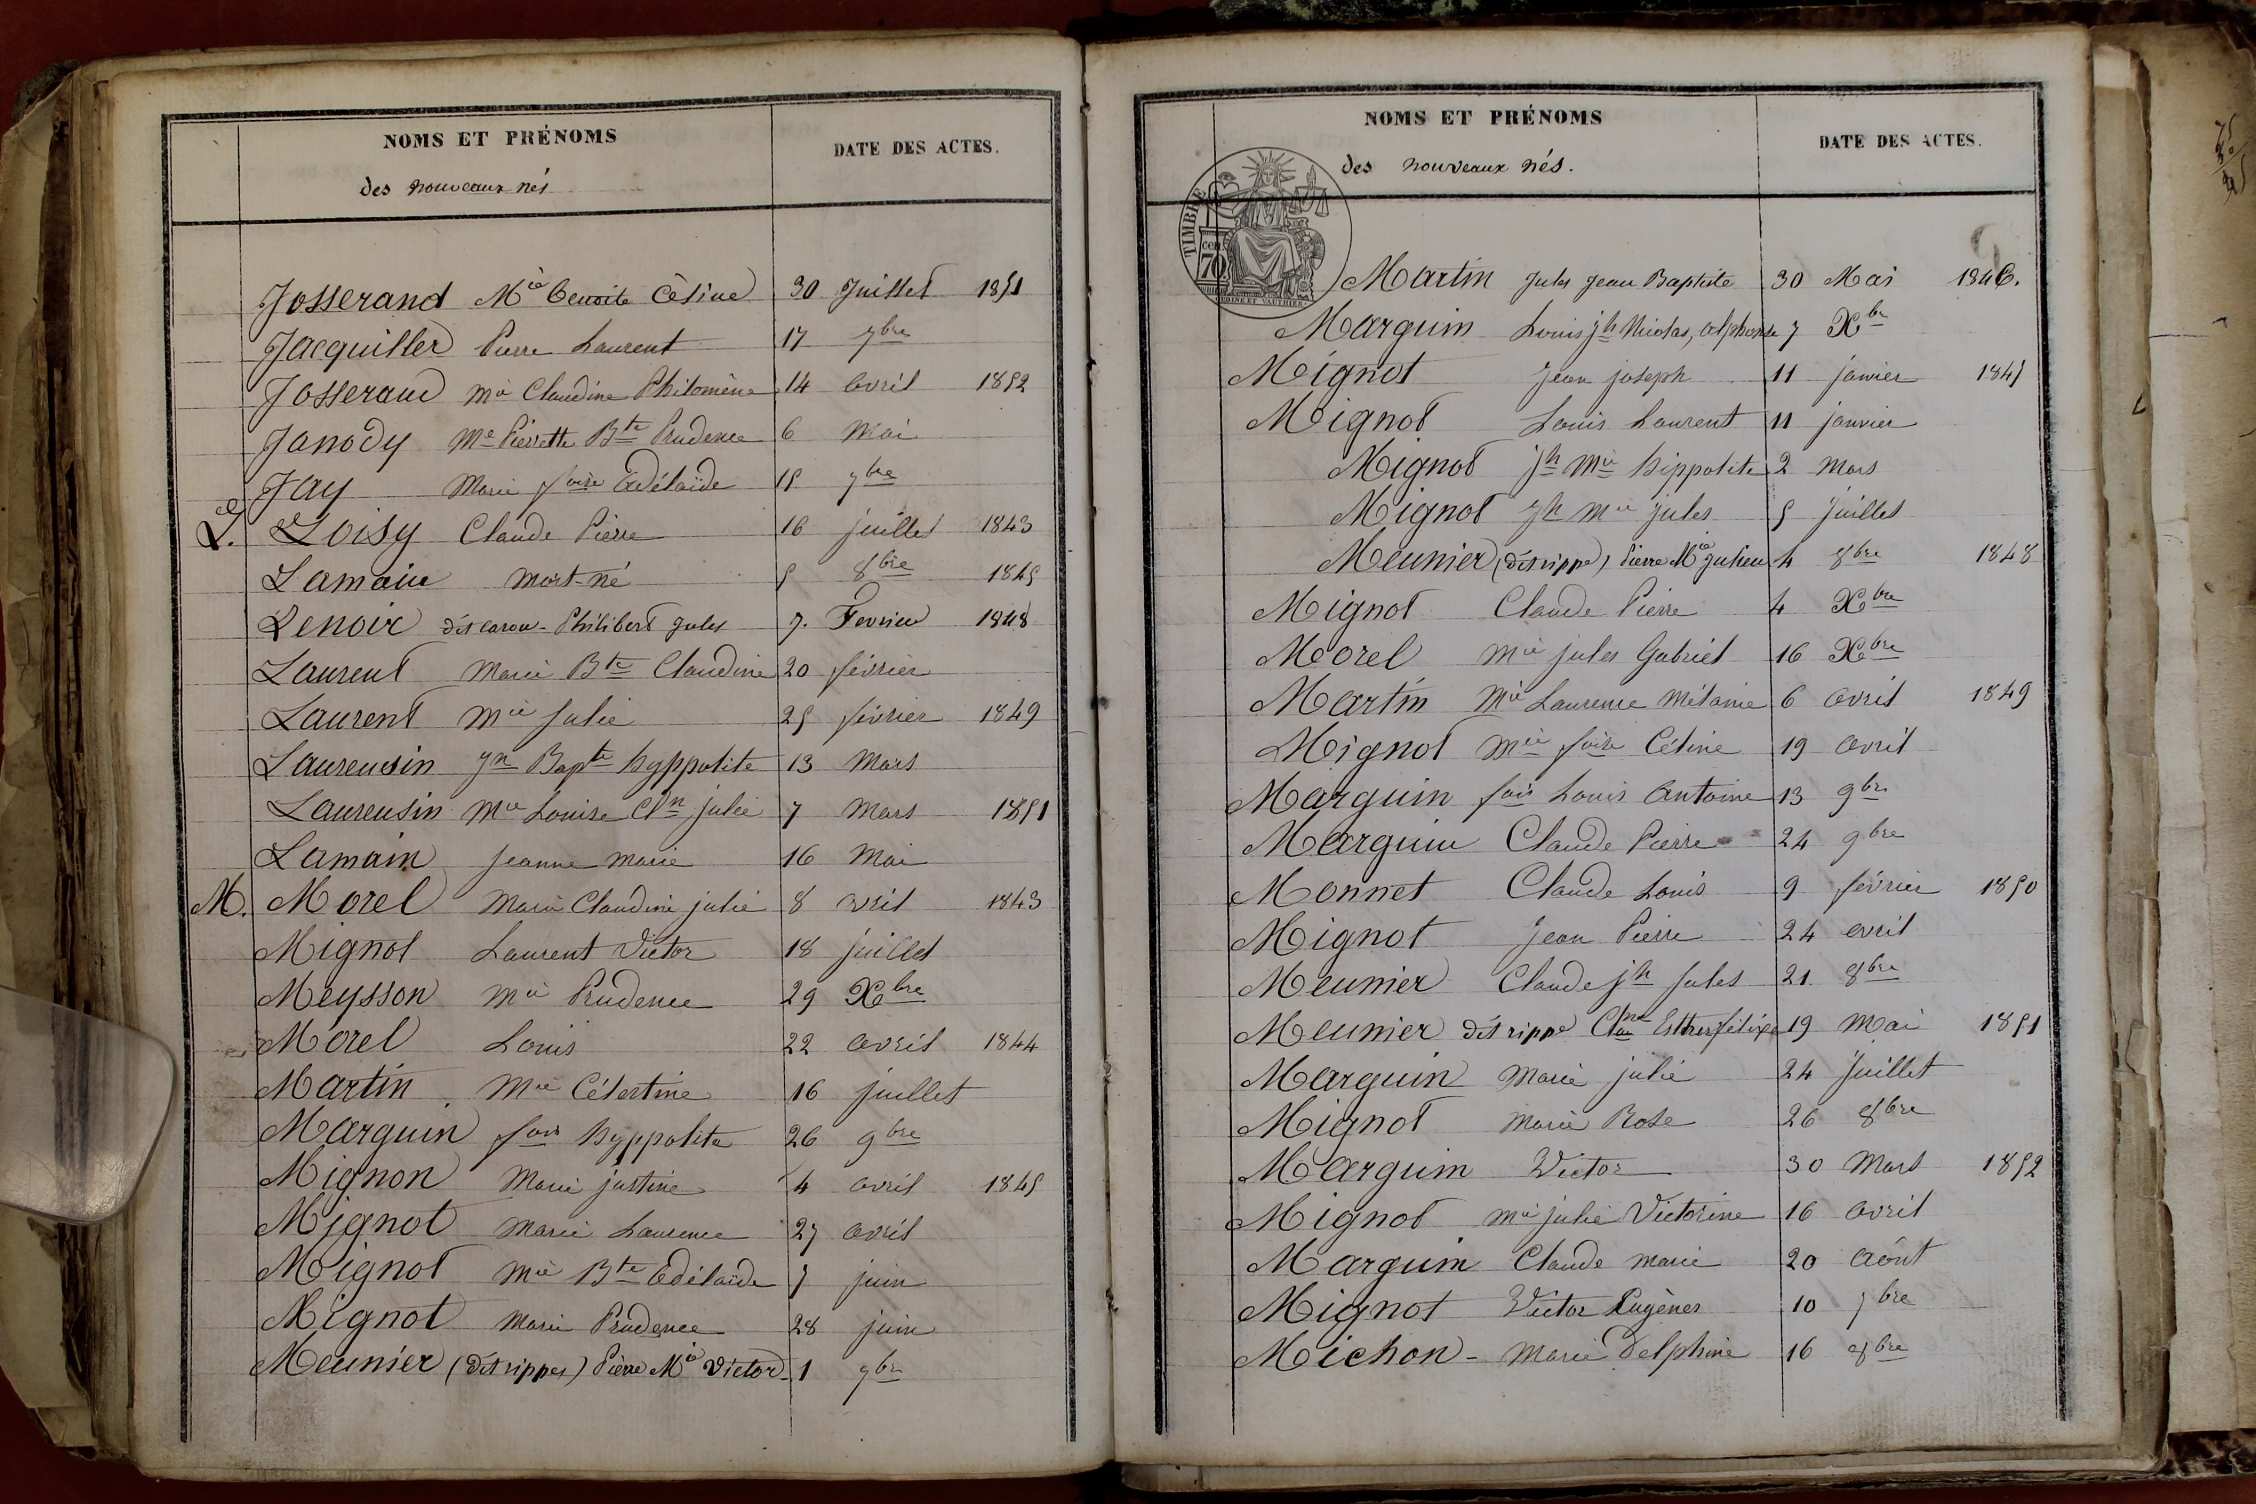 NOMS ET PRÉNOMS
DATE DES ACTES.
des nouveaux nés
Josserand Mie Benoite Céline 30 Juillet 1851
Jacquiller Pierre Laurent 17 7bre
Josserand Mie Claudine Philomène 14 avril 1852
Janody Me Pierrette Bte Prudence 6 Mai
Jay Marie foise Adélaïde 15 7bre
L. Loisy Claude Pierre 16 juillet 1843
Lamain mort-né 5 8bre 1845
Lenoir dit caron - Philibert Jules 7. Fevrier 1848
Laurent Marie Bte Claudine 20 février
Laurent Mie Julie 25 février 1849
Laurensin Jn Bapte hyppolite 13 Mars
Laurensin Mie Louise Cln julie 7 Mars 1851
Lamain Jeanne Marie 16 Mai
M. Morel Marie Claudine julie 8 avril 1843
Mignot Laurent Victor 18 juillet
Meysson Mie Prudence 29 Xbre
Morel Louis 22 avril 1844
Martin Mie Célestine 16 juillet
Marguin fois hyppolite 26 9bre
Mignon Marie justine 4 avril 1845
Mignot Marie Laurence 27 avril
Mignot Mie Bte Adélaïde 7 juin
Mignot Marie Prudence 28 juin
Meunier (dit rippes) Pierre Mie Victor 1 7br
NOMS ET PRÉNOMS
DATE DES ACTES.
des nouveaux nés.
TIMBRE
70
Martin Jules Jean Baptiste 30 Mai 1846.
Marguin Louis jh Nicolas, alphonse 7 Xbr
Mignot Jean joseph 11 janvier 1847
Mignot Louis Laurent 11 janvier
Mignot Jh Mie hippolite 2 Mars
Mignot Jh Mie jules 5 juillet
Meunier (dit rippe) Pierre Mie Julien 4 8bre 1848
Mignot Claude Pierre 4 Xbre
Morel Mie jules Gabriel 16 Xbre
Martin Mie Laurence Mélanie 6 avril 1849
Mignot Mie foise Céline 19 avril
Marguin fois Louis Antoine 13 9bre
Marguin Claude Pierre 24 9bre
Monnet Claude Louis 9 février 1850
Mignot Jean Pierre 24 avril
Meunier Claude jh Jules 21. 8bre
Meunier dit rippe Esther 19 Mai 1851
Marguin Marie julie 24 Juillet
Mignot Marie Rose 26 8bre
Marguin Victor 30 Mars 1852
Mignot Mie julie Victorine 16 avril
Marguin Claude Marie 20 Aôut
Mignot Victor Eugènes 10 7bre
Michon - Marie Delphine 16 8bre